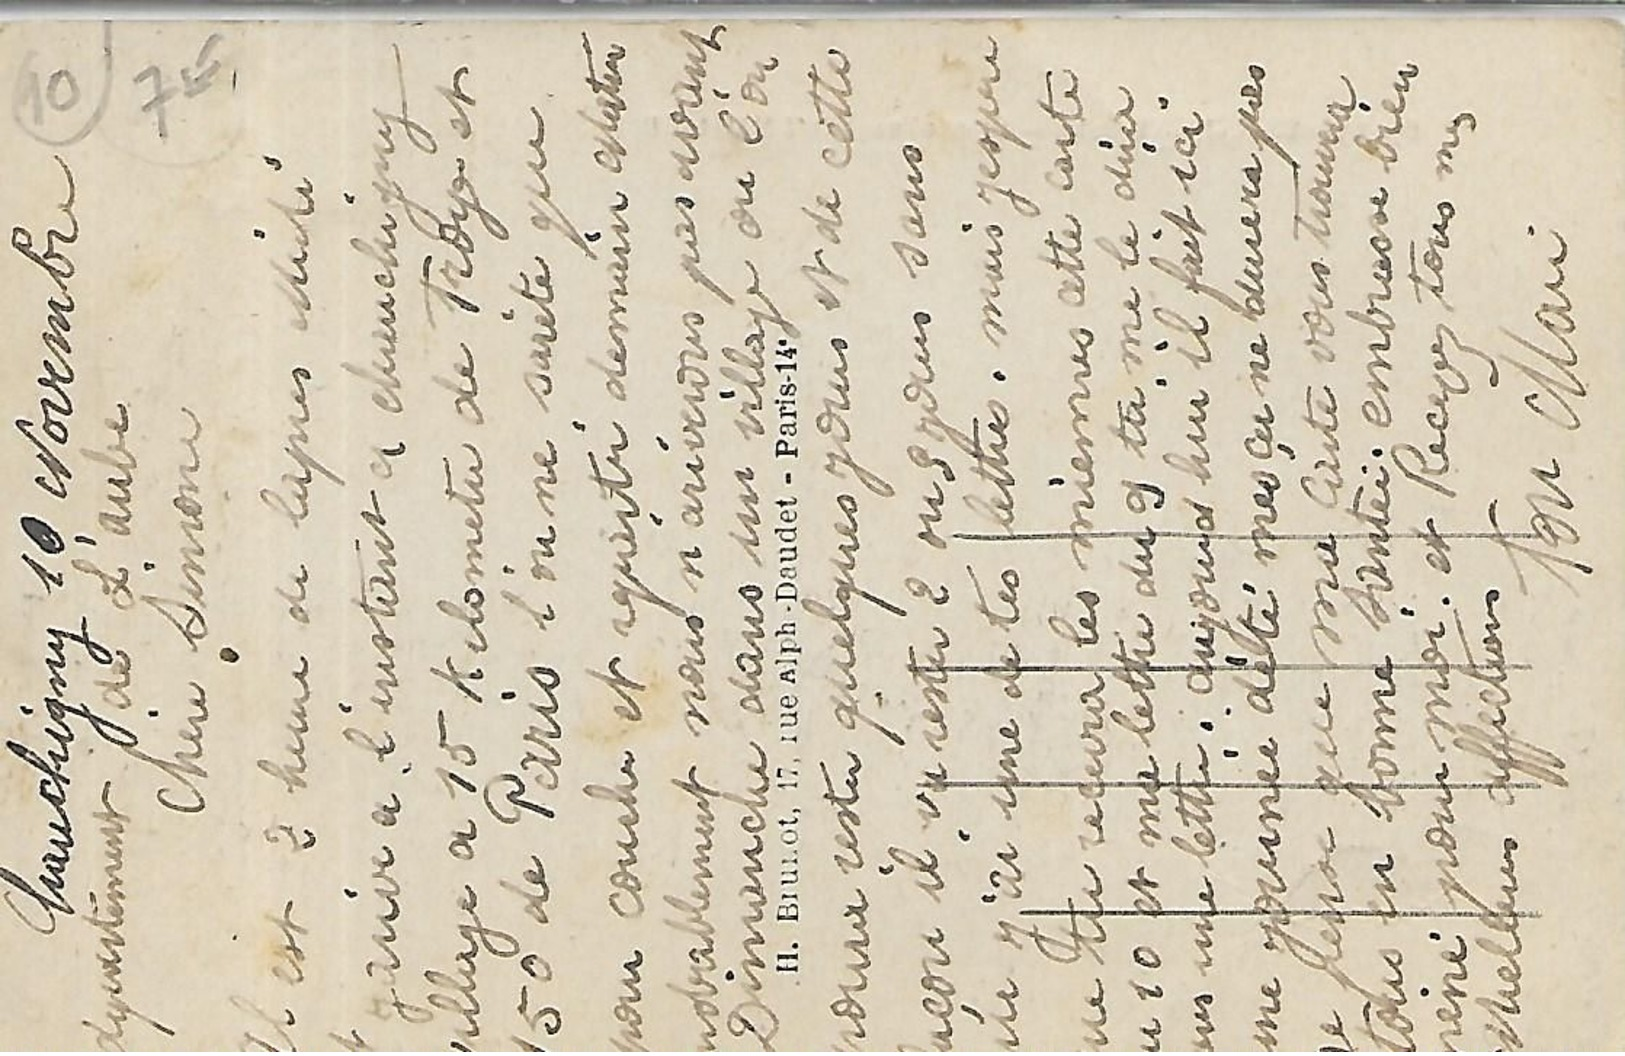 10
7
chauchigny 10 Novembre
département de L'aube
Chere Simone
Il est 2 heure de lapres midi
et jarive a l'instant a chauchigny
village a 15 kilometre de Troye et
150 de Paris l'on ne sarète que
pour coucher et repartir demain
probablement nous n'arriverons pas avant
Dimanche dans un village ou l'on
poura rester quelques jours et de cette
facon il va rester 2 ou 3 jours sans
j'ai une de tes lettres. mais jespere
que tu recevra les miennes cette carte
du 10 et me lettre du 9 tu me le dira
sur une lettre. aujourd hui il fait ici
une journée délté mes ça ne durera pas
Je pense que ma carte vous trouvera
tous en bonne santée. embrasse bien
pour moi. et Recoy tous mes
meilleurs affections
Ton Mari
H. Brunot, 17, rue Alph-Daudet - Paris-14e